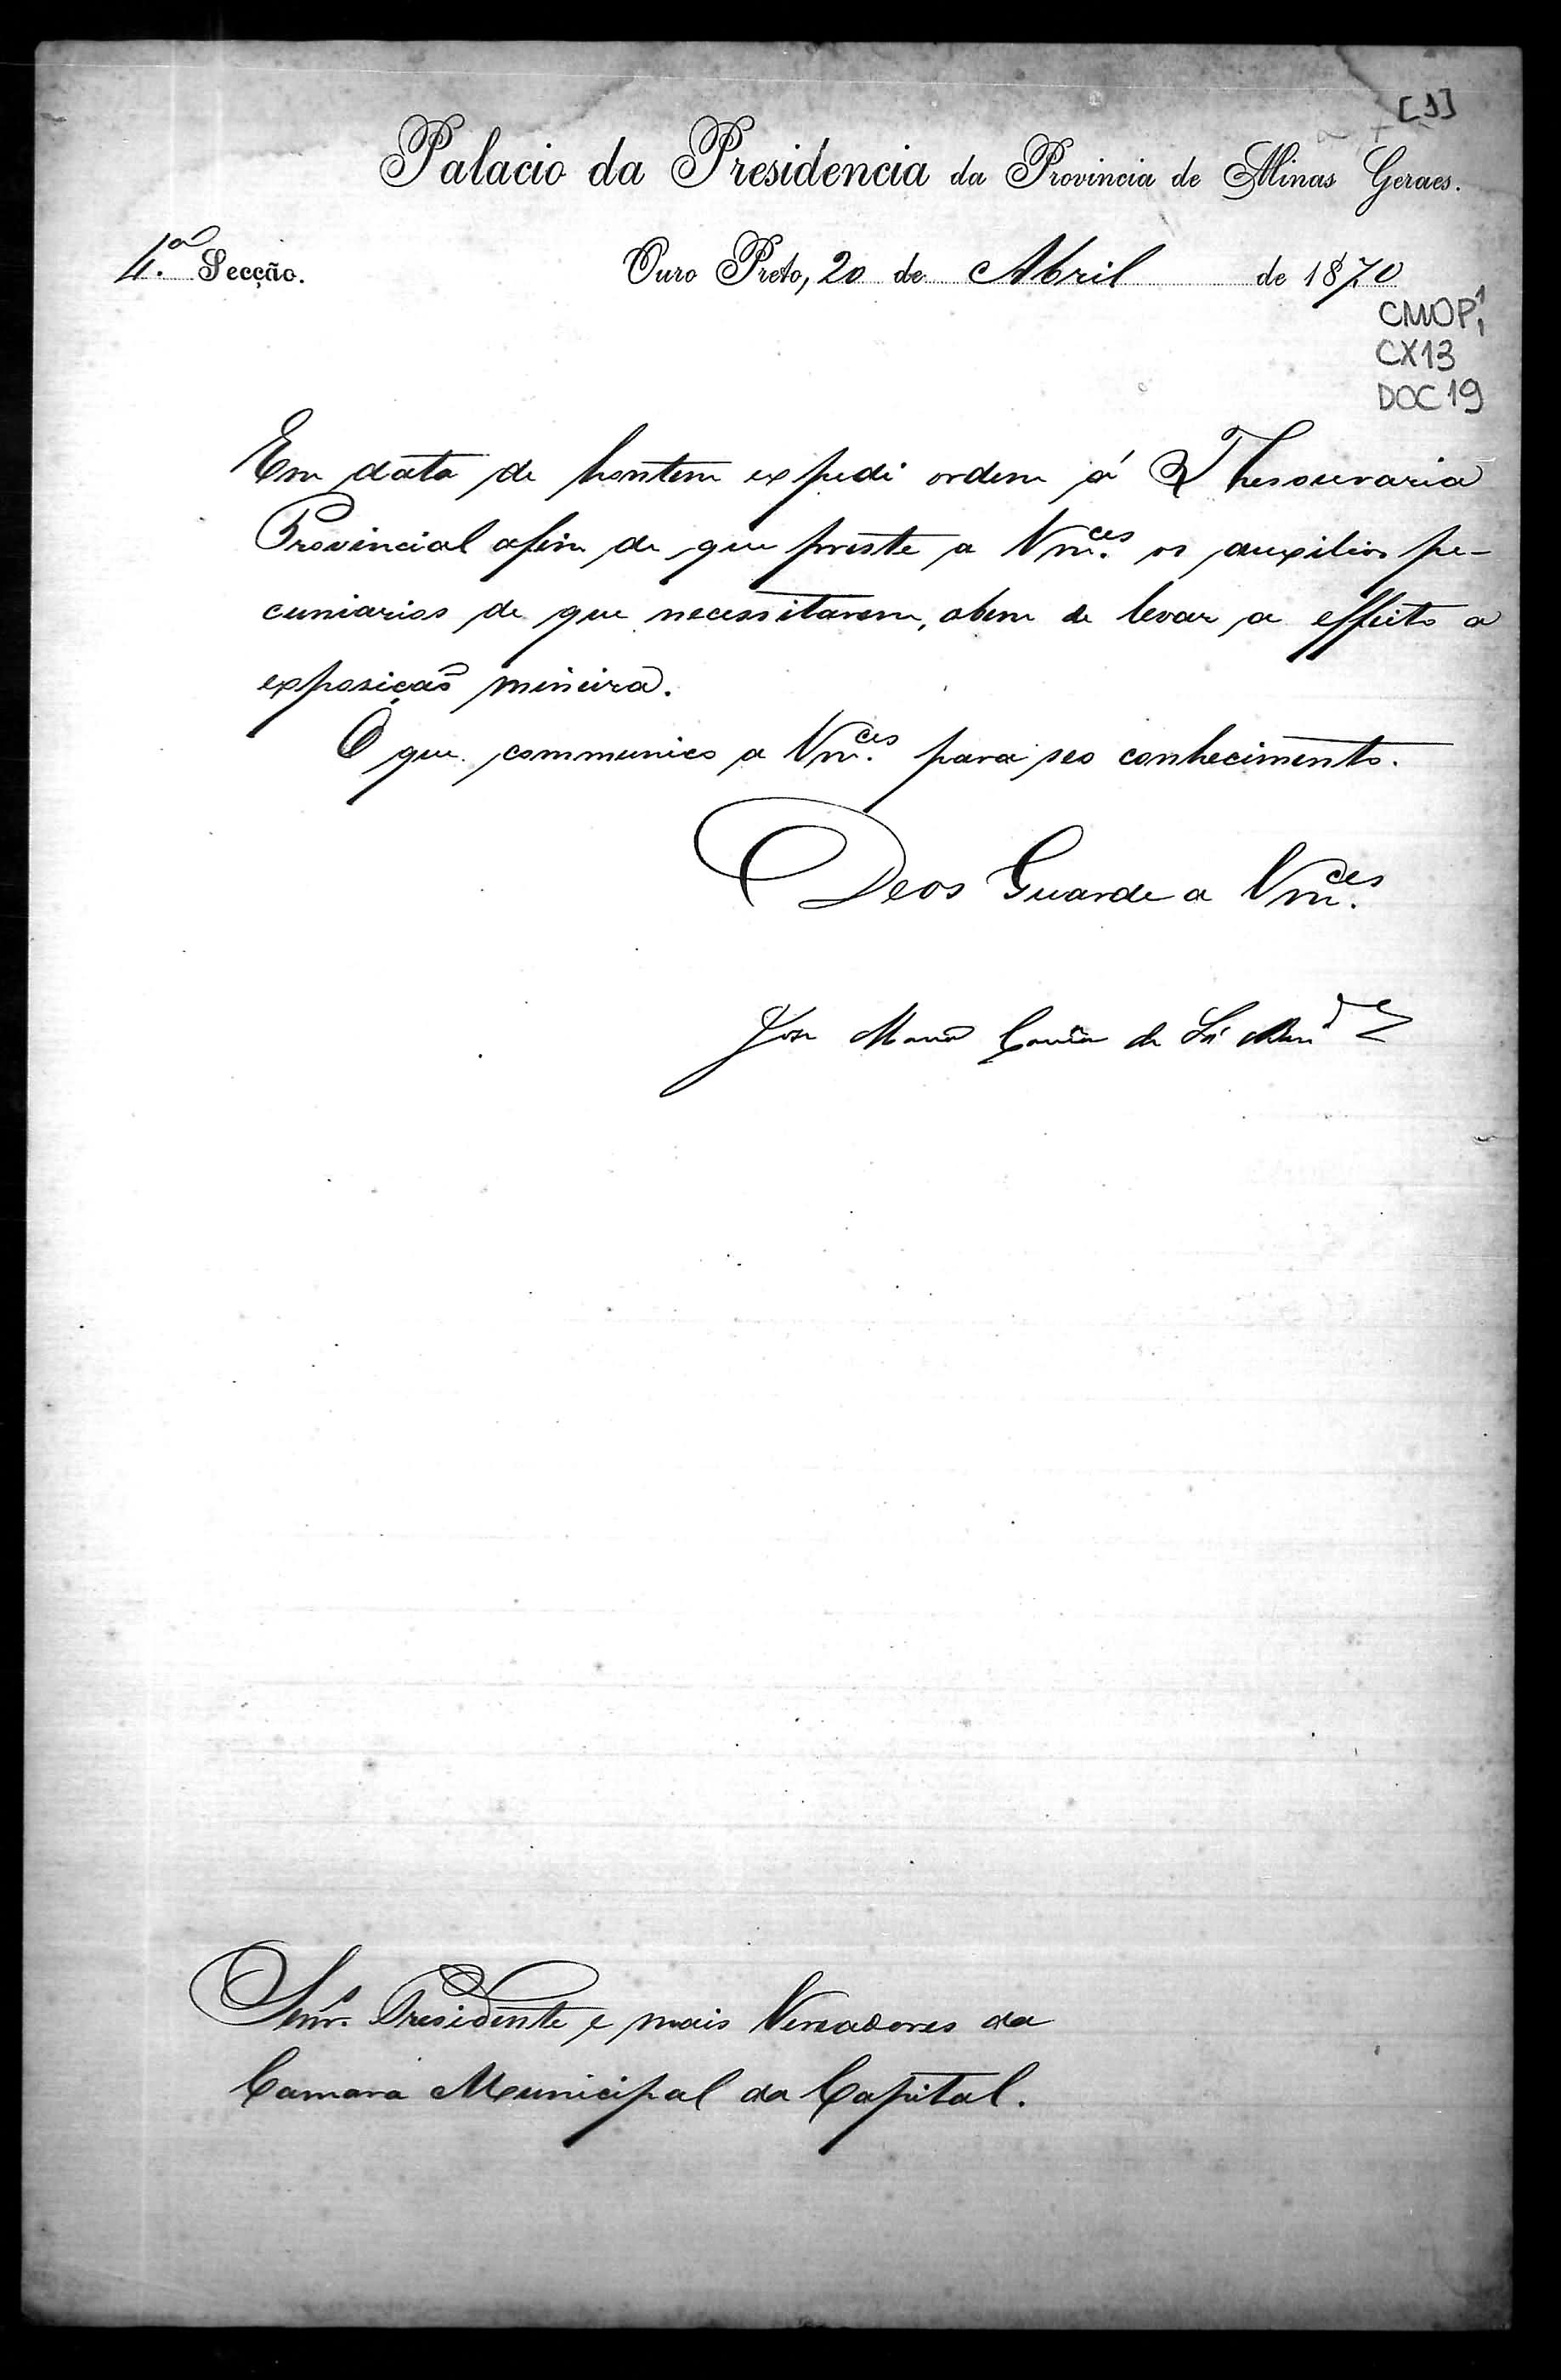 [1]
Palacio da Presidencia da Provincia de Minas Geraes.
4.ª Secção.
Ouro Preto, 20 de Abril de 1870
CMOP 1
CX13
DOC 19
Em data de hontem expedi ordem á Thesouraria
Provincial afim de que preste a Vm.ces os auxilios pe-
cuniarios de que necessitarem, abem de levar a effeito a
exposição mineira.
O que communico a Vm.ces para seo conhecimento.
Deos Guarde a Vm.ces
José Maria Corrêa de Sá e Ben.des
Snr.s Presidente e mais Vereadores da
Camara Municipal da Capital.